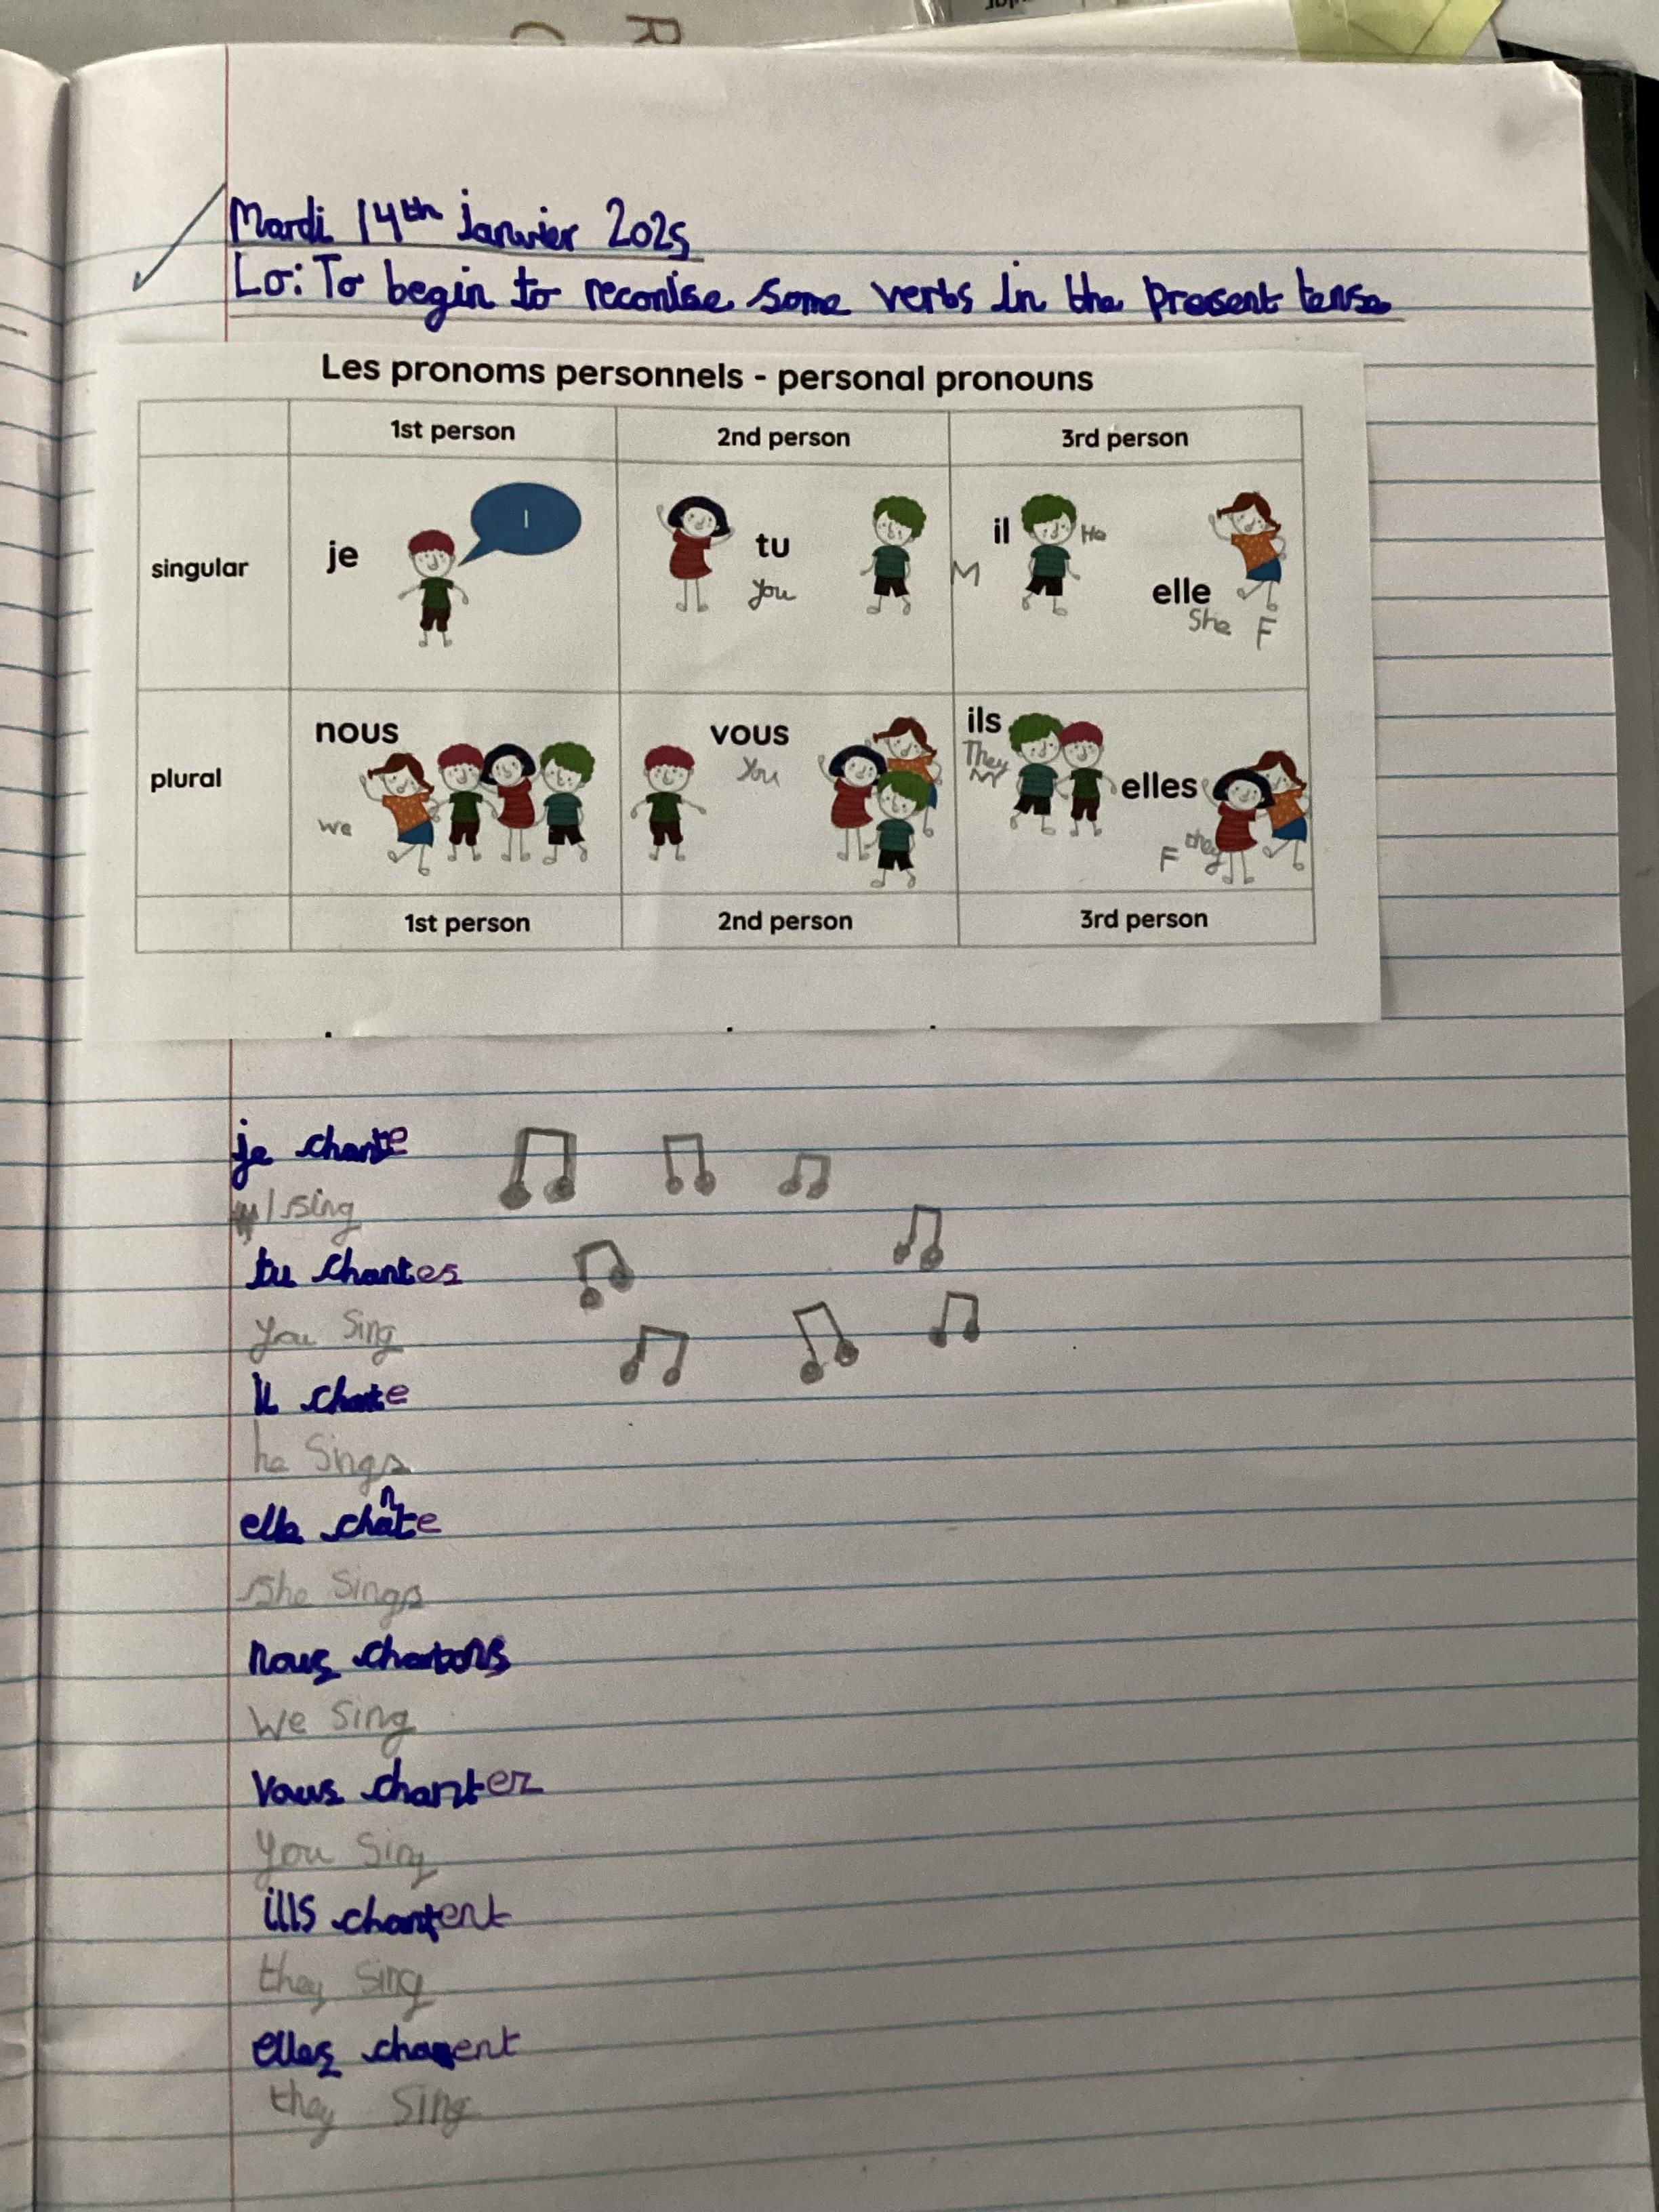 Mardi 14th janvier 2025
Lo: To begin to reconise some verbs in the present tense
Les pronoms personnels - personal pronouns
1st person 2nd person 3rd person
singular je I tu You M il He elle She F
plural nous we vous You ils They M elles they F
1st person 2nd person 3rd person
je chante
I sing
tu chantes
you Sing
il chante
he Sings
elle chante
She Sings
nous chantons
We Sing
Vous chantez
you Sing
ills chantent
they Sing
elles
they Sing